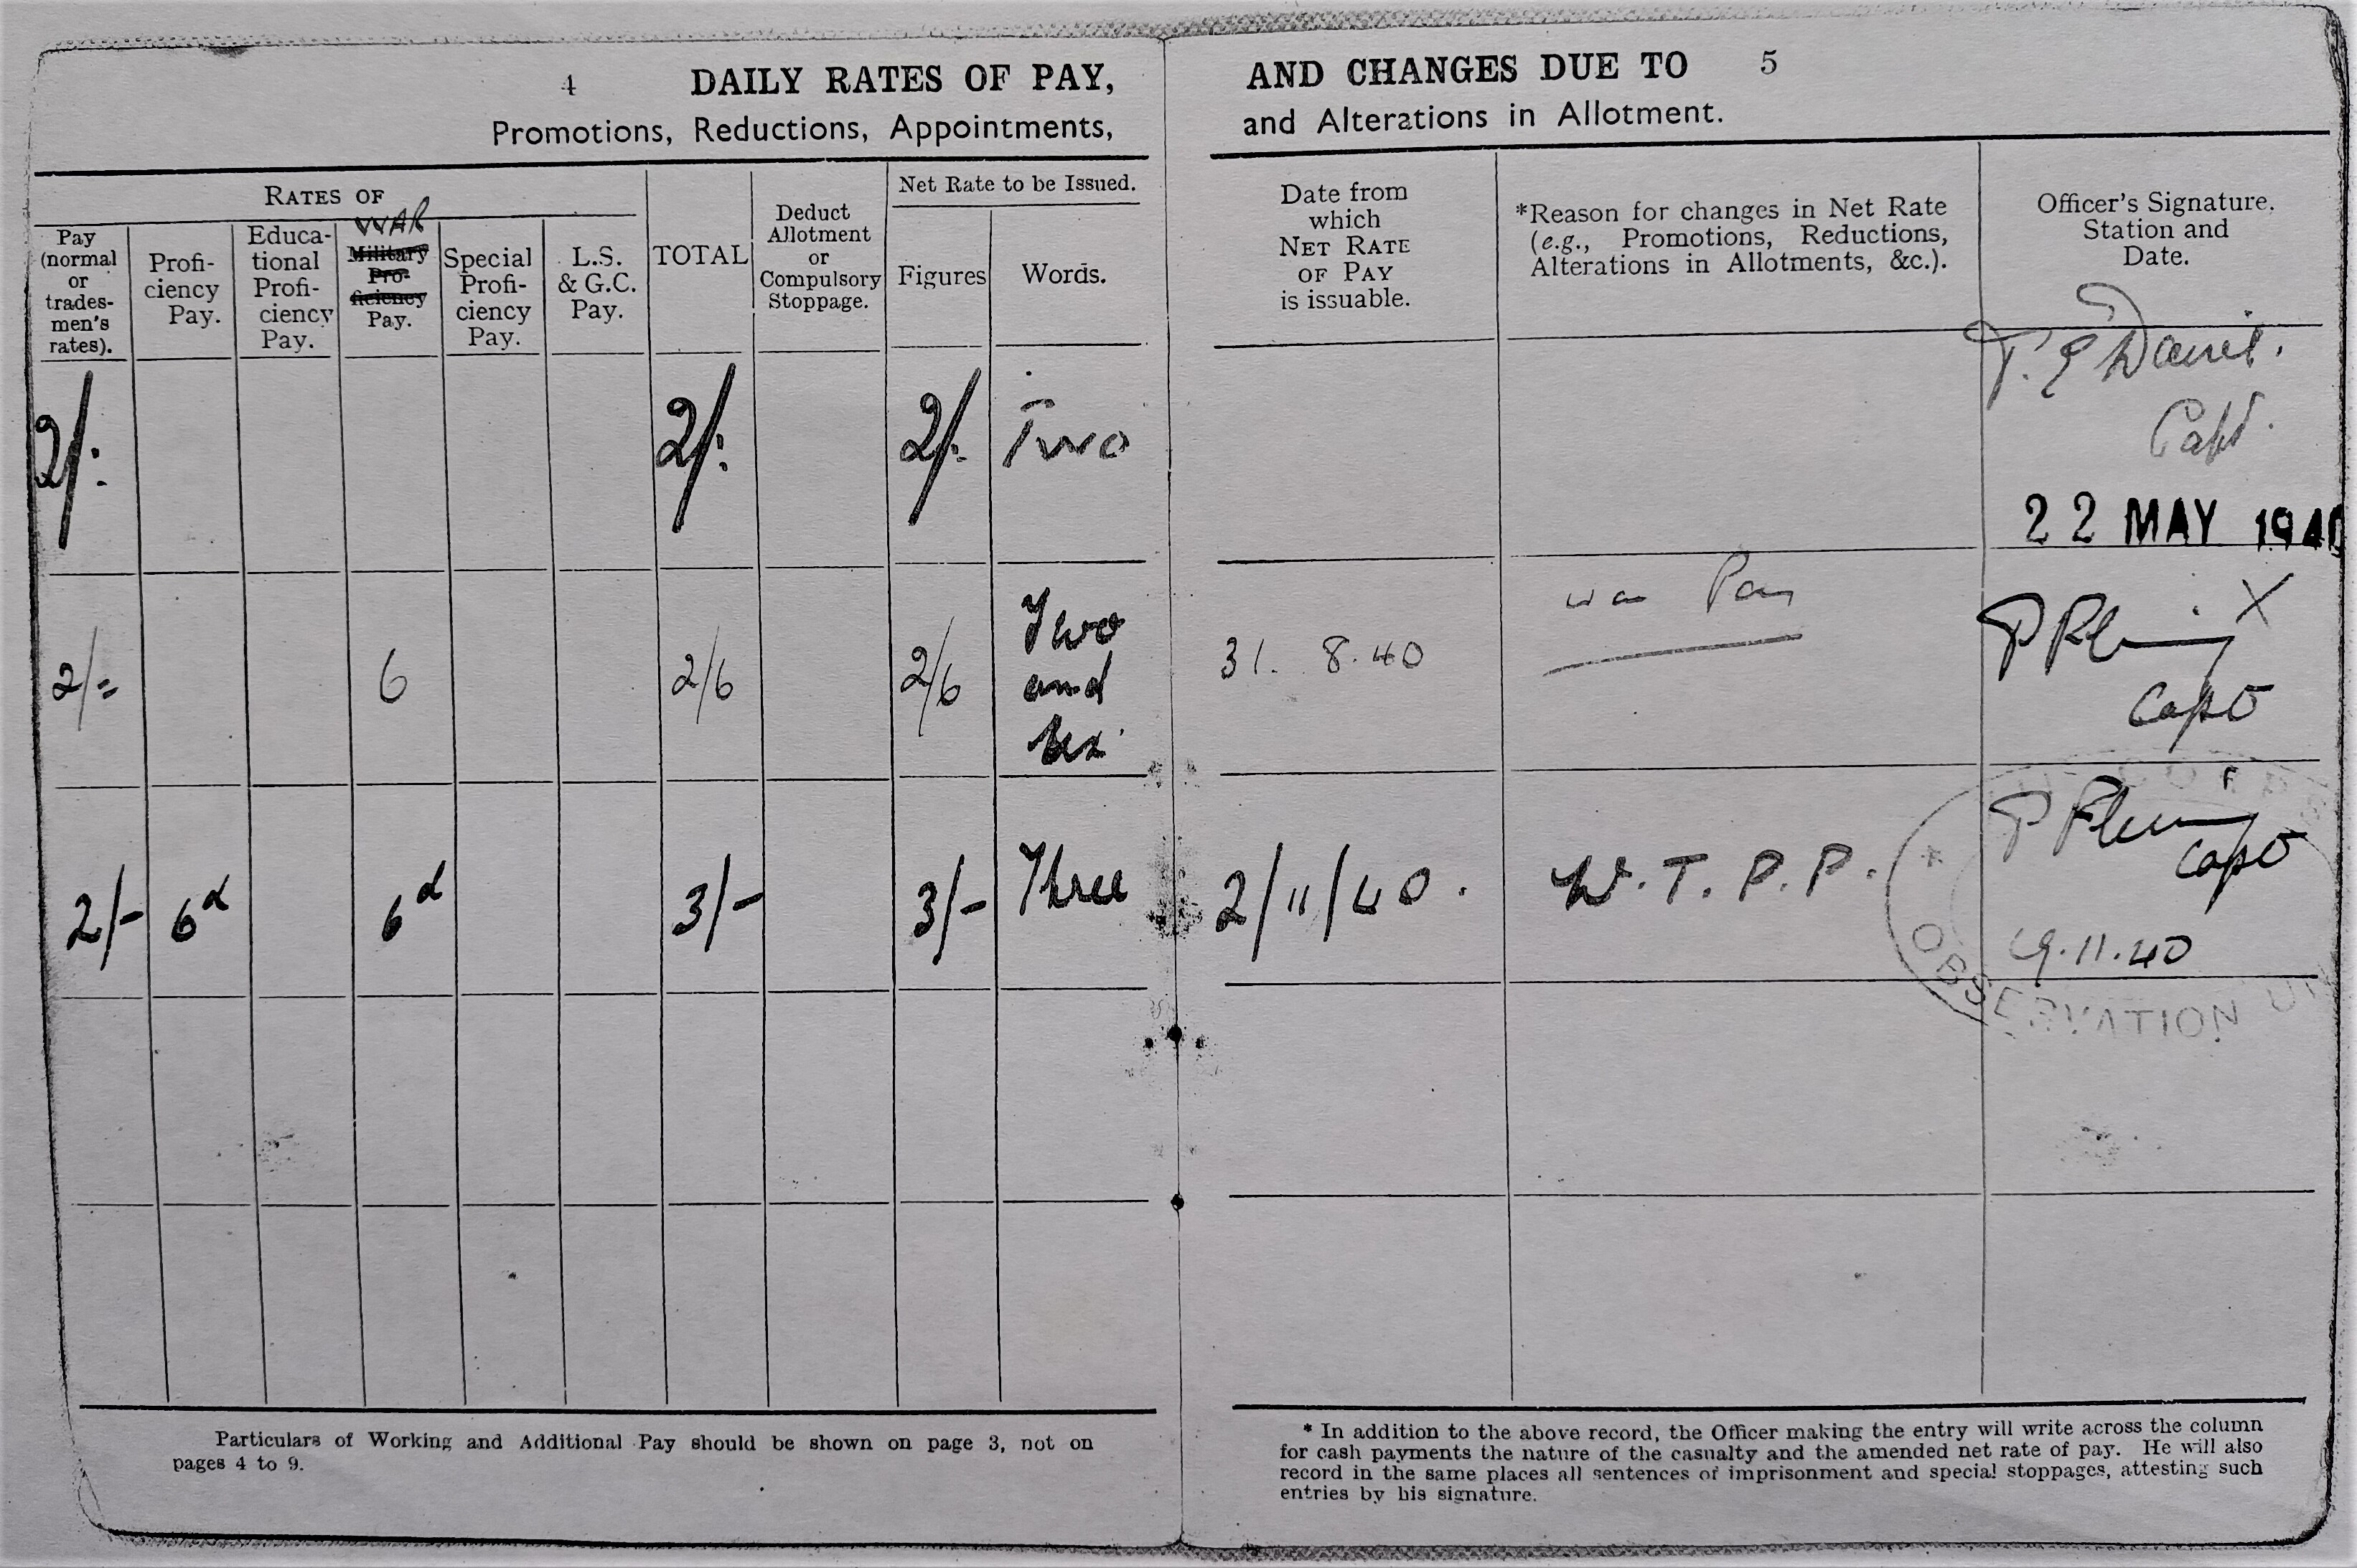 4
DAILY RATES OF PAY,
Promotions, Reductions, Appointments,
RATES OF
Net Rate to be Issued.
Pay
(normal
or
trades-
men's
rates).
Profi-
ciency
Pay.
Educa-
tional
Profi-
ciency
Pay.
WAR
Military
Pro-
ficiency
Pay.
Special
Profi-
ciency
Pay.
L.S.
& G.C.
Pay.
TOTAL
Deduct
Allotment
or
Compulsory
Stoppage.
Figures
Words.
2/: 2/: 2/: Two
2/= 6 2/6 2/6 Two
and
Six.
2/- 6d 6d 3/- 3/- Three
Particulars of Working and Additional Pay should be shown on page 3, not on
pages 4 to 9.
AND CHANGES DUE TO 5
and Alterations in Allotment.
Date from
which
NET RATE
OF PAY
is issuable.
*Reason for changes in Net Rate
(e.g., Promotions, Reductions,
Alterations in Allotments, &c.).
Officer's Signature.
Station and
Date.
T. E Davis.
Capt.
22 MAY 1940
31. 8.40 War Pay
Capt
2/11/40. W.T.P.P. P Fleming
Capt
19.11.40
OBSERVATION
* In addition to the above record, the Officer making the entry will write across the column
for cash payments the nature of the casualty and the amended net rate of pay. He will also
record in the same places all sentences of imprisonment and special stoppages, attesting such
entries by his signature.